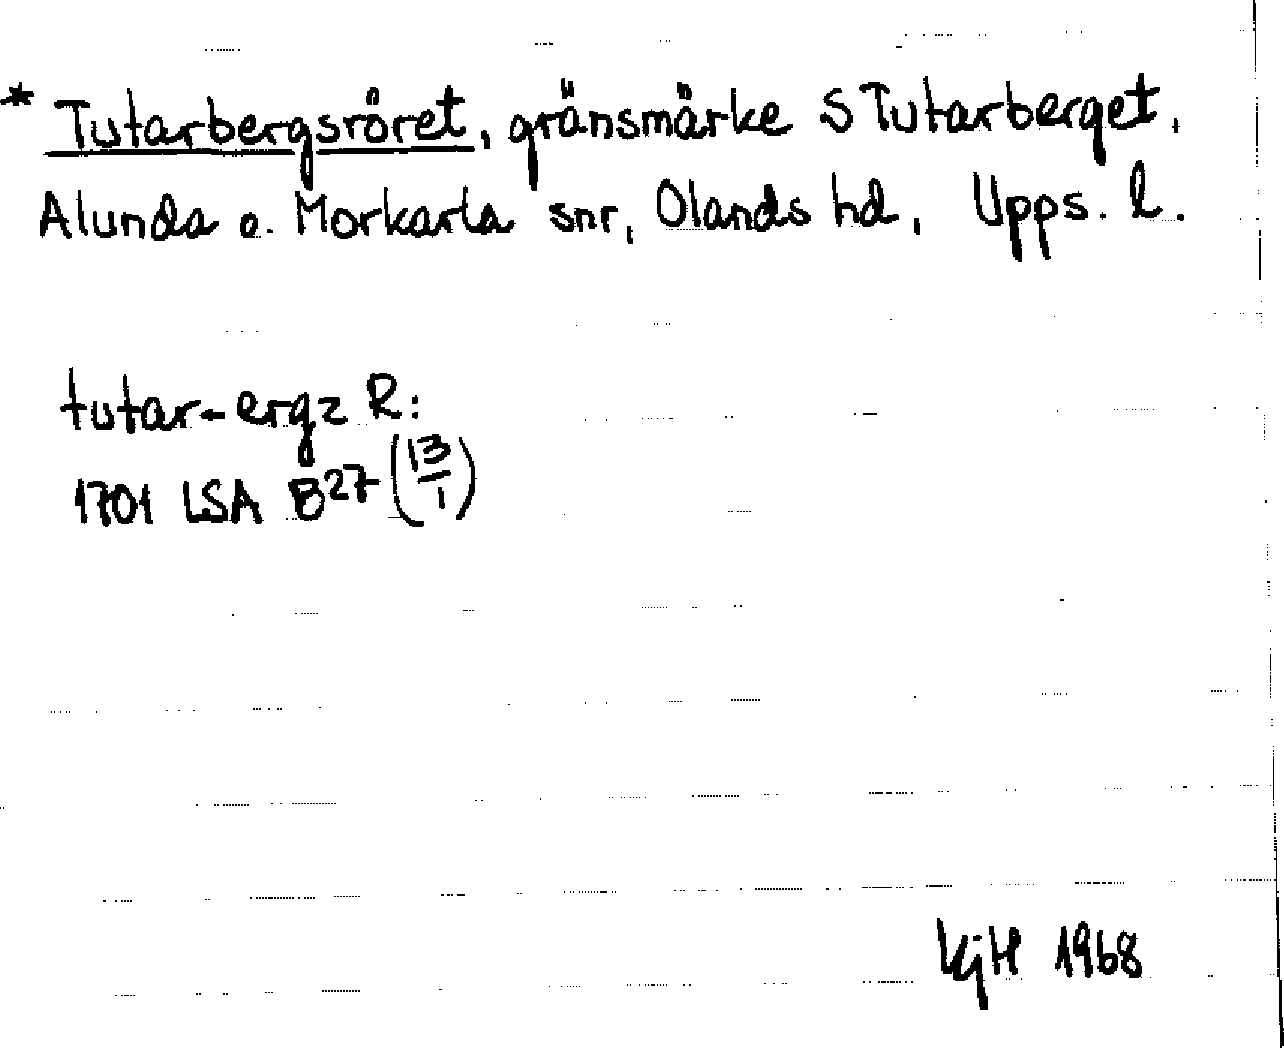 * Tutarbergsröret, gränsmärke S Tutarberget,
Alunda o. Morkarla snr, Olands hd, Upps. l.
tutar-ergz R:
1701 LSA B27 (13/1)
KjH 1968